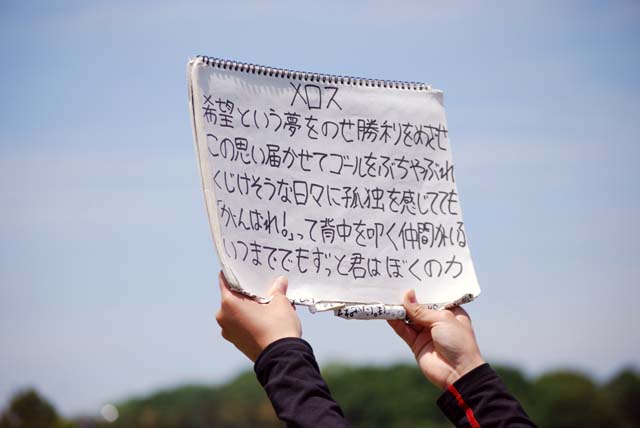 メロス
希望という夢をのせ勝利をめざせ
この思い届かせてゴールをぶちやぶれ
くじけそうな日々に孤独を感じてても
「がんばれ!」って背中を叩く仲間がいる
いつまででもずっと君はぼくの力